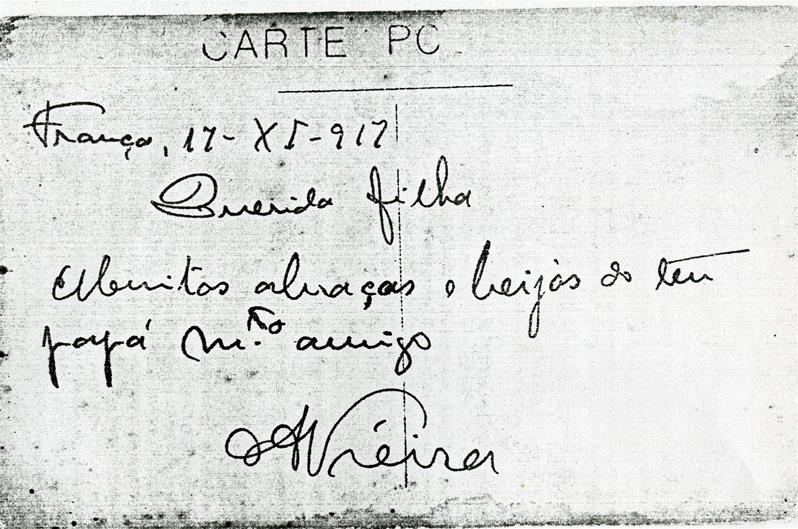 CARTE PO
França, 17-XI-917
Querida filha
Muitos abraços e beijos do teu
papá m.to amigo
AVieira